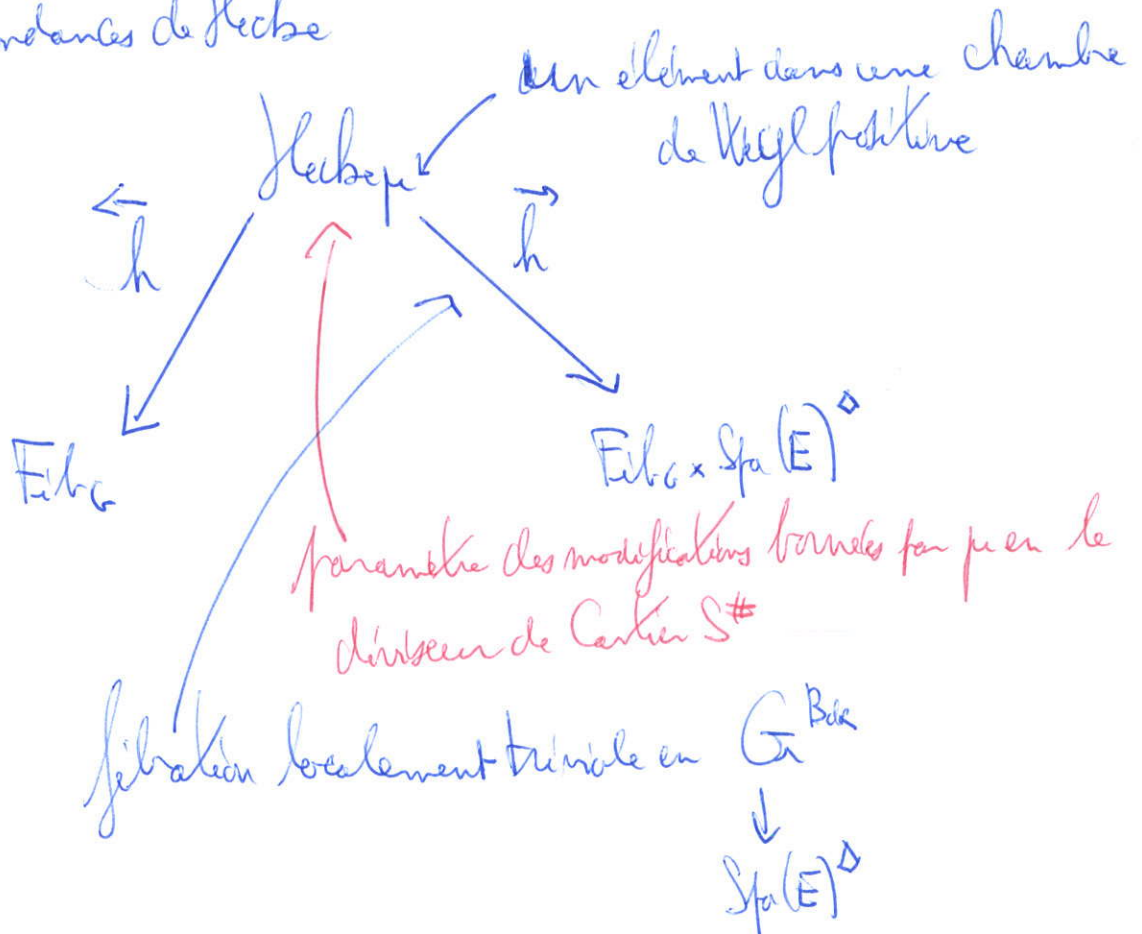 ndances de Hecke
un élément dans une chambre
de Weyl positive
Hecke≤μ
←h
→h
Fib_G
Fib_G × Spa(E)^◇
paramètre des modifications bornées par μ en le
diviseur de Cartier S^#
fibration locale­ment triviale en Gr^{BdR}
↓
Spa(E)^◇